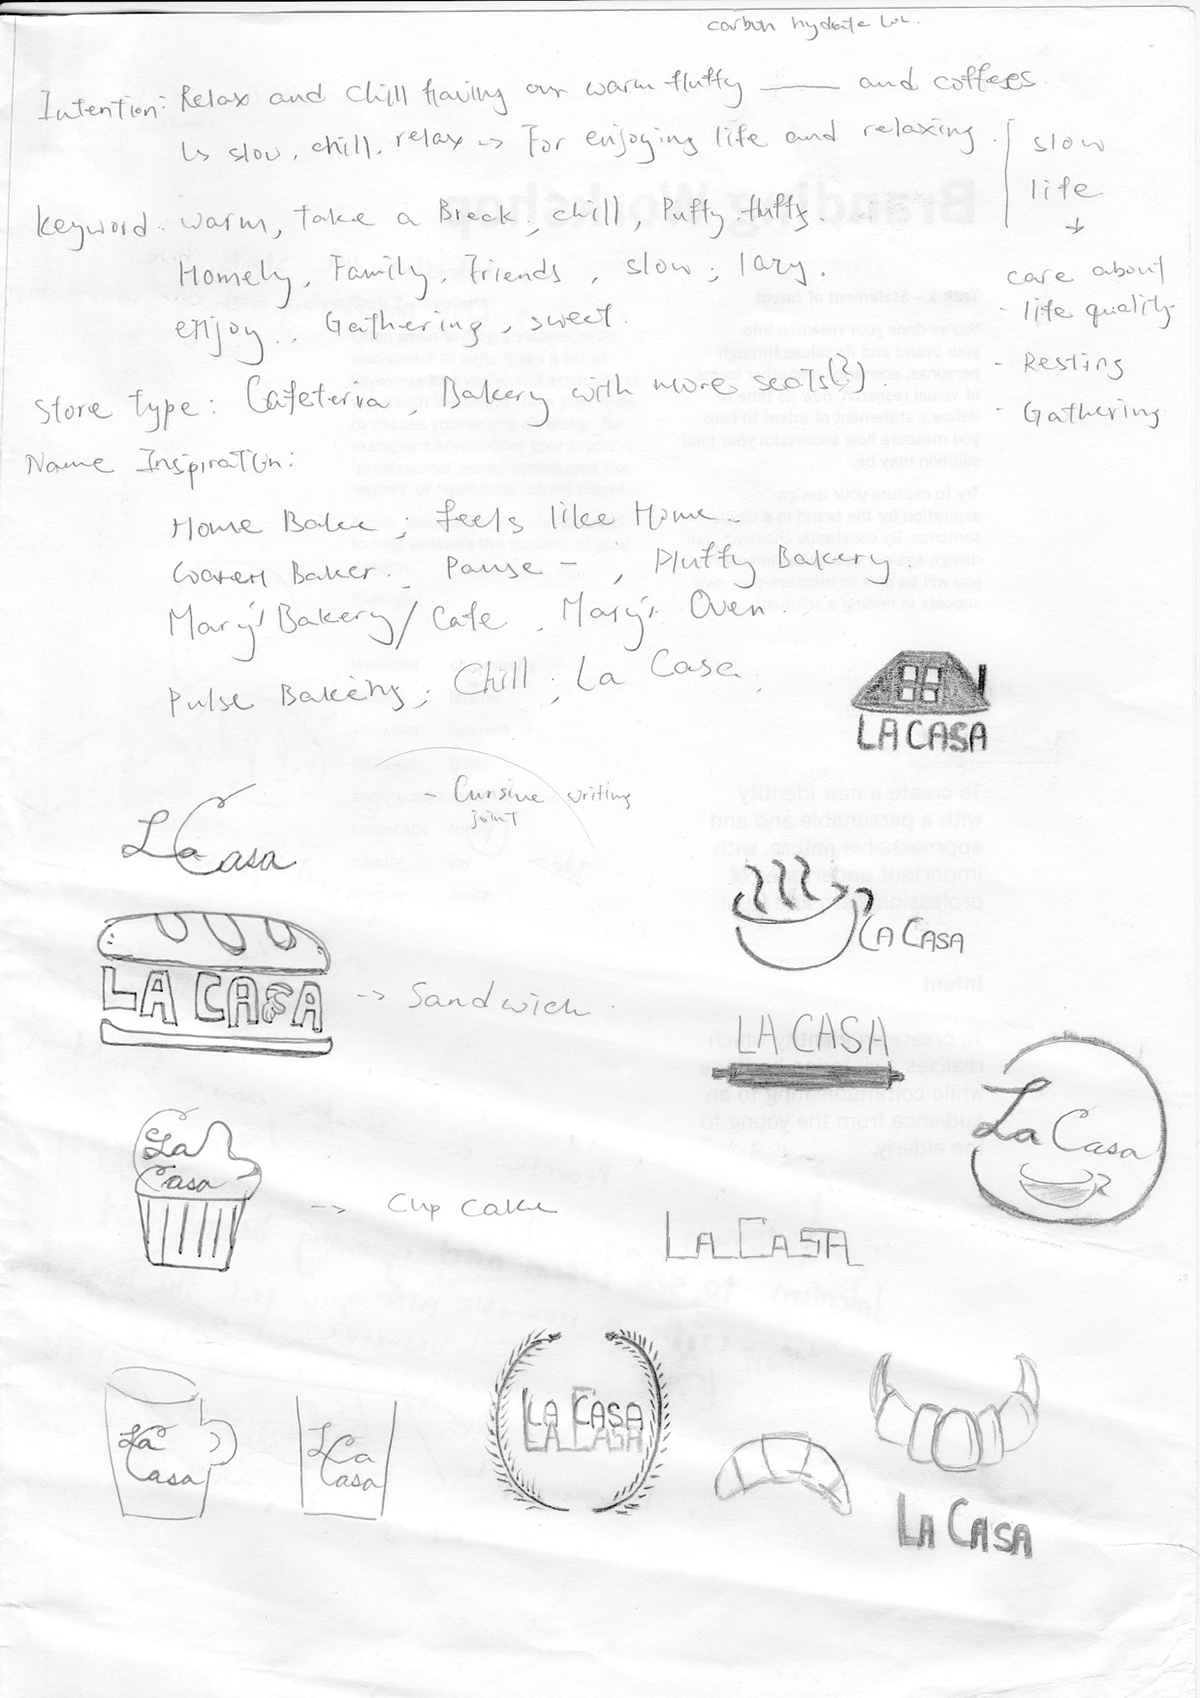 carbon hydrate LoL.
Intention: Relax and chill having our warm fluffy ___ and coffees.
↳ slow, chill, relax → For enjoying life and relaxing.
slow
life
↓
care about
- life quality
- Resting
- Gathering
Keyword: warm, take a Break, chill, Puffy fluffy.
Homely, Family, Friends, slow, lazy.
enjoy, Gathering, sweet.
Store Type: Cafeteria, Bakery with more seats(?).
Name Inspiration:
Home Bake; feels like Home.
Baker. Pause - , Pluffy Bakery
Mary's Bakery/Cafe, Mary's Oven.
Pulse Bakery; Chill; La Casa.
LA CASA
- Cursive writing
joint
La Casa
LA CASA
LA CASA → Sandwich
LA CASA
La Casa
La
Casa → Cup cake
LA CASA
La
Casa
La
Casa
LA CASA
LA CASA
LA CASA